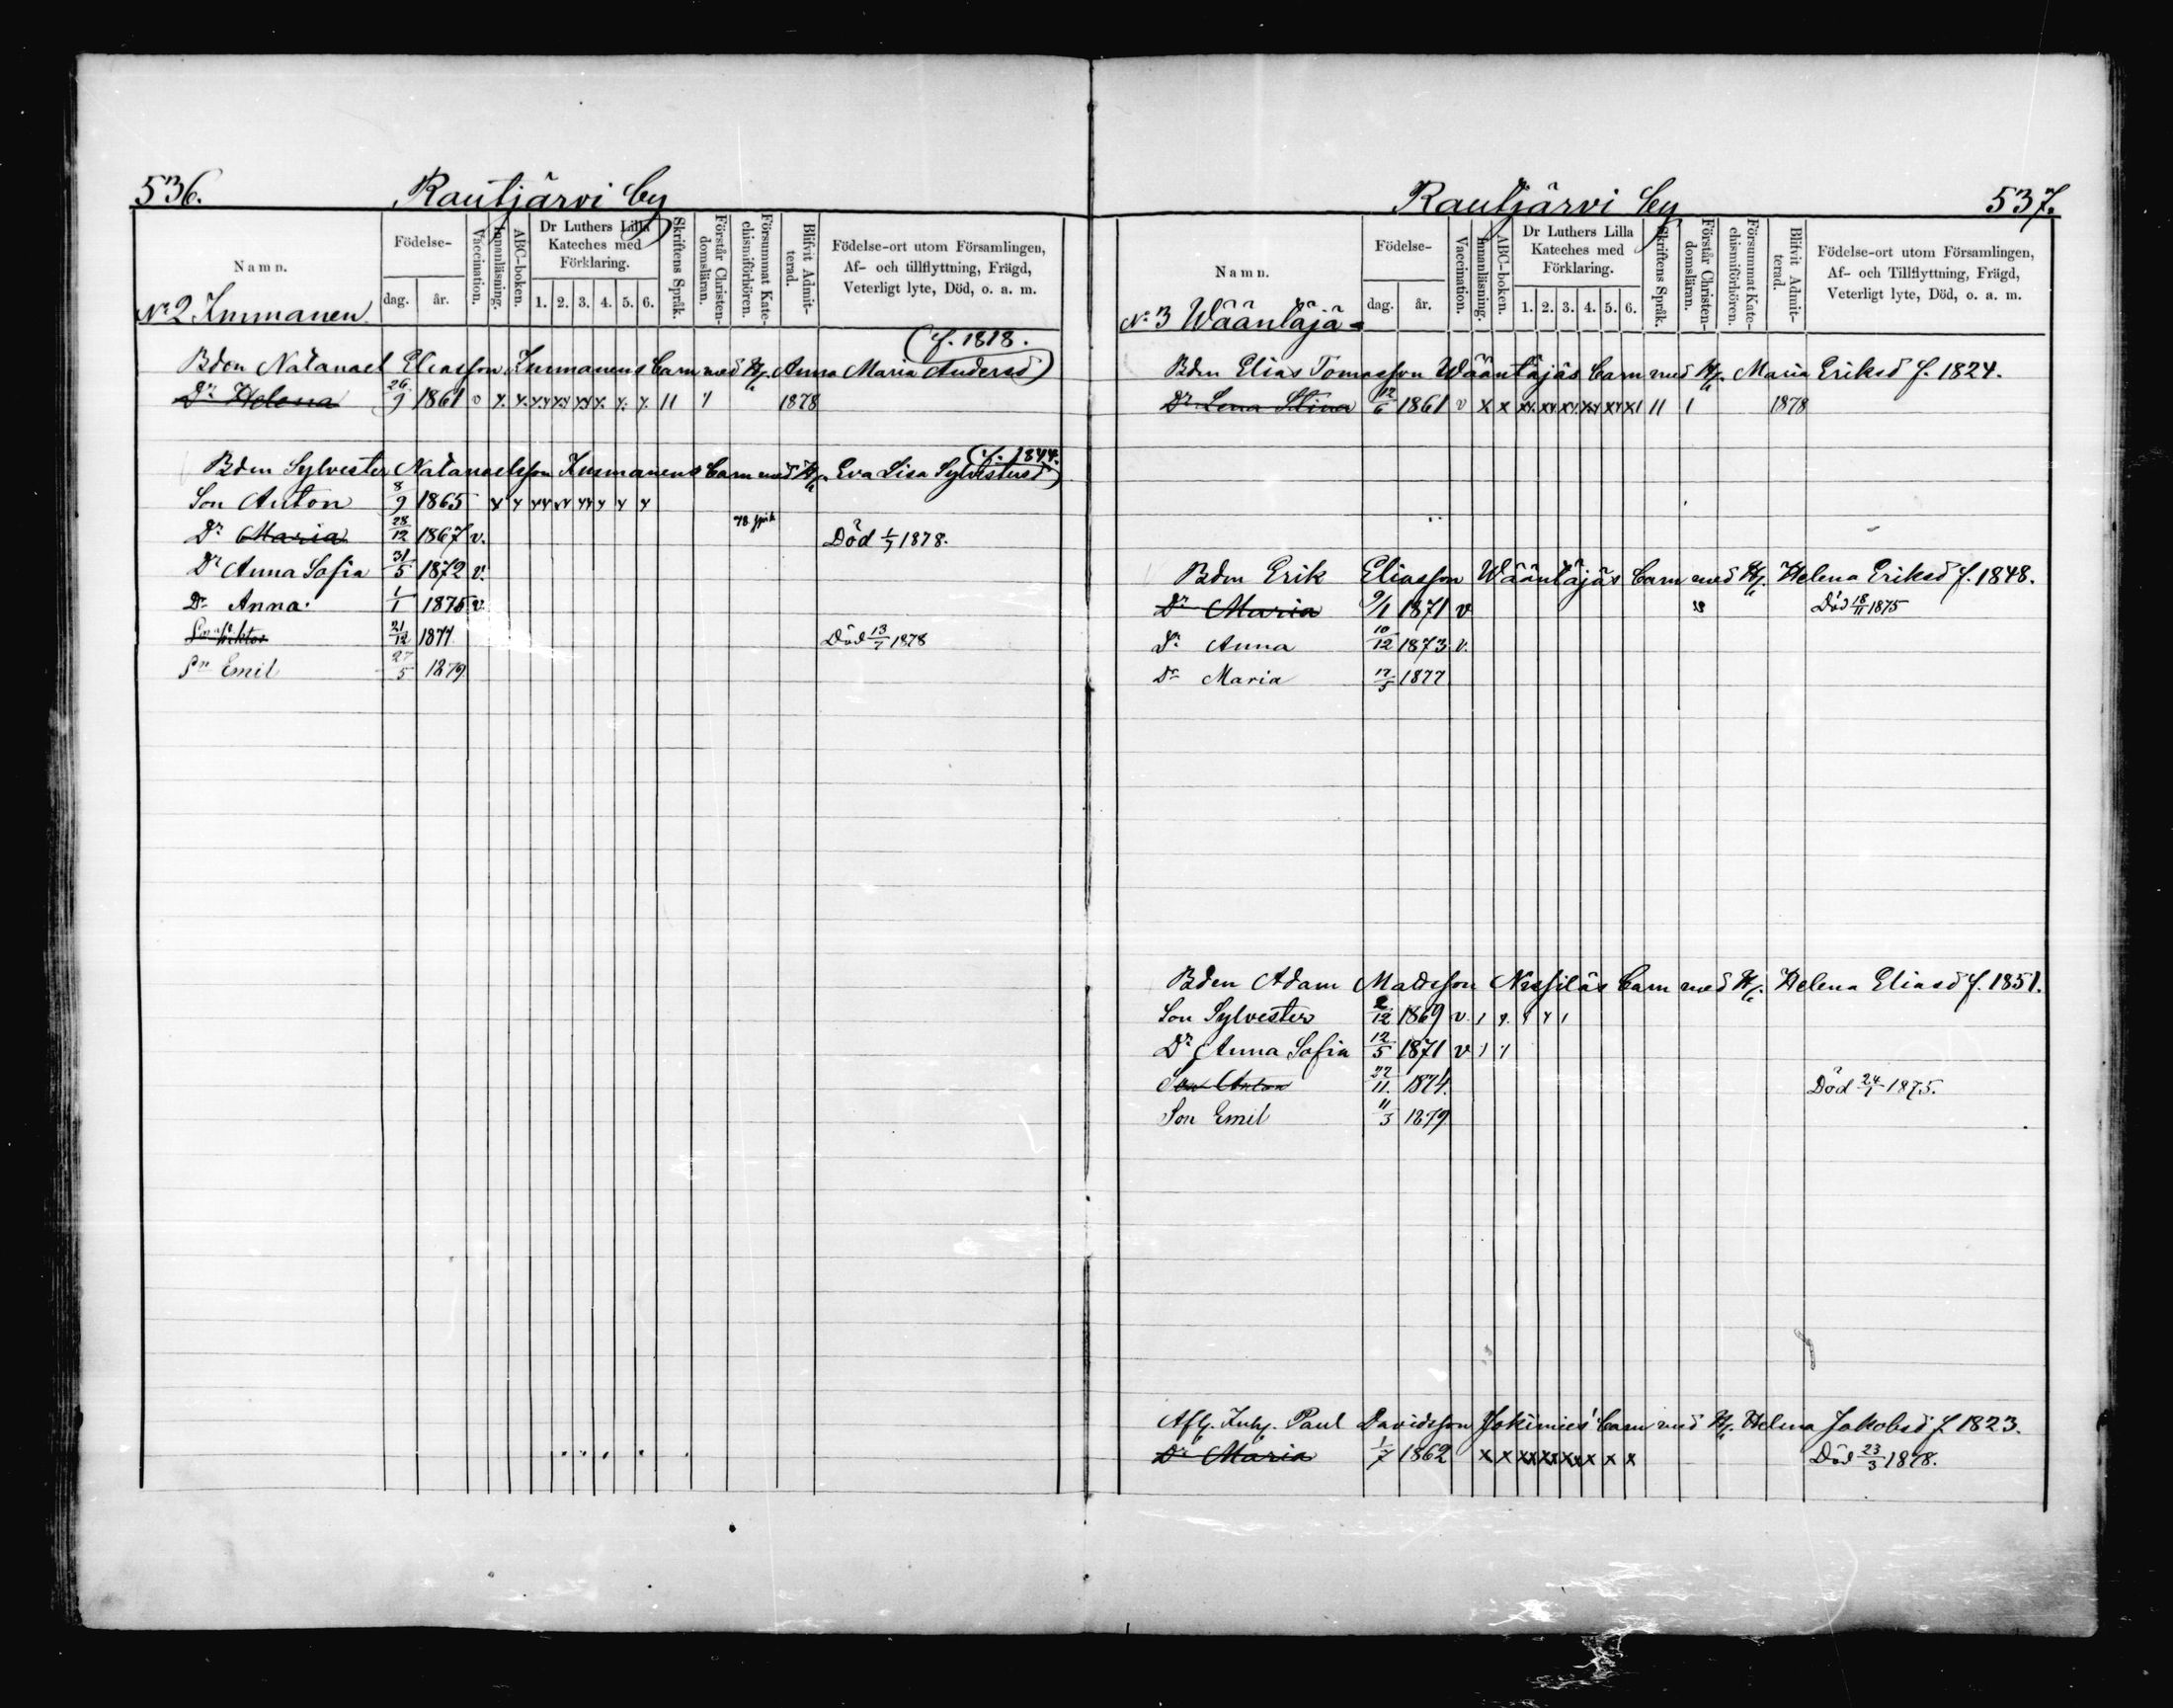 536.
Rautjärvi by
Namn.
Födelse-
dag.
år.
Vaccination.
Innanläsning.
ABC-boken.
Dr Luthers Lilla
Kateches med
Förklaring.
1. 2. 3. 4. 5. 6.
Skriftens Språk.
Förstår Christen-
domsläran.
Försummat Kate-
chismiförhören.
Blifvit Admit-
terad.
Födelse-ort utom Församlingen,
Af- och tillflyttning, Frägd,
Veterligt lyte, Död, o. a. m.
No 2 Inmanen
f. 1818.
Bden Natanael Eliasson Inmanens barn med H. Anna Maria Andersd
Dr Helena 26/9 1861 v x x xx xx xx x x x 11 1 1878
f. 1844.
Bden Sylvester Natanaelsson Inmanens barn med H. Eva Lisa Sylvestersd
Son Anton 8/9 1865 x x xx xx xx x x x
Dr Maria 28/12 1867 v. Död 1/7 1878.
Dr Anna Sofia 31/5 1872 v.
Dr Anna 1/1 1875 v.
Son Viktor 21/12 1877 Död 13/7 1878
Sn Emil 27/5 1879
Rautjärvi by
537.
Namn.
Födelse-
dag.
år.
Vaccination.
Innanläsning.
ABC-boken.
Dr Luthers Lilla
Kateches med
Förklaring.
1. 2. 3. 4. 5. 6.
Skriftens Språk.
Förstår Christen-
domsläran.
Försummat Kate-
chismiförhören.
Blifvit Admit-
terad.
Födelse-ort utom Församlingen,
Af- och Tillflyttning, Frägd,
Veterligt lyte, Död, o. a. m.
No 3 Wääntäjä
Bden Elias Tomasson Wääntäjäs barn med H. Maria Eriksd f. 1824.
Dr Lena Stina 12/6 1861 v x x xx xx xx xx xx x1 11 1 1878
Bden Erik Eliasson Wääntäjäs barn med H. Helena Eriksd f. 1848.
Dr Maria 9/1 1871 v Död 18/11 1875
Dr Anna 10/12 1873 v.
Dr Maria 17/5 1877
Bden Adam Matsson barn med H. Helena Eliasd f. 1851.
Son Sylvester 2/12 1869 v.
Dr Anna Sofia 12/5 1871 v
Son Anton 22/11 1874. Död 24/1 1875.
Son Emil 11/3 1879
Afl. Inh. Paul Davidsson Jokimies' barn med H. Helena Jakobsd f. 1823.
Dr Maria 1/7 1862 x x xx xx xx x x x Död 23/3 1878.